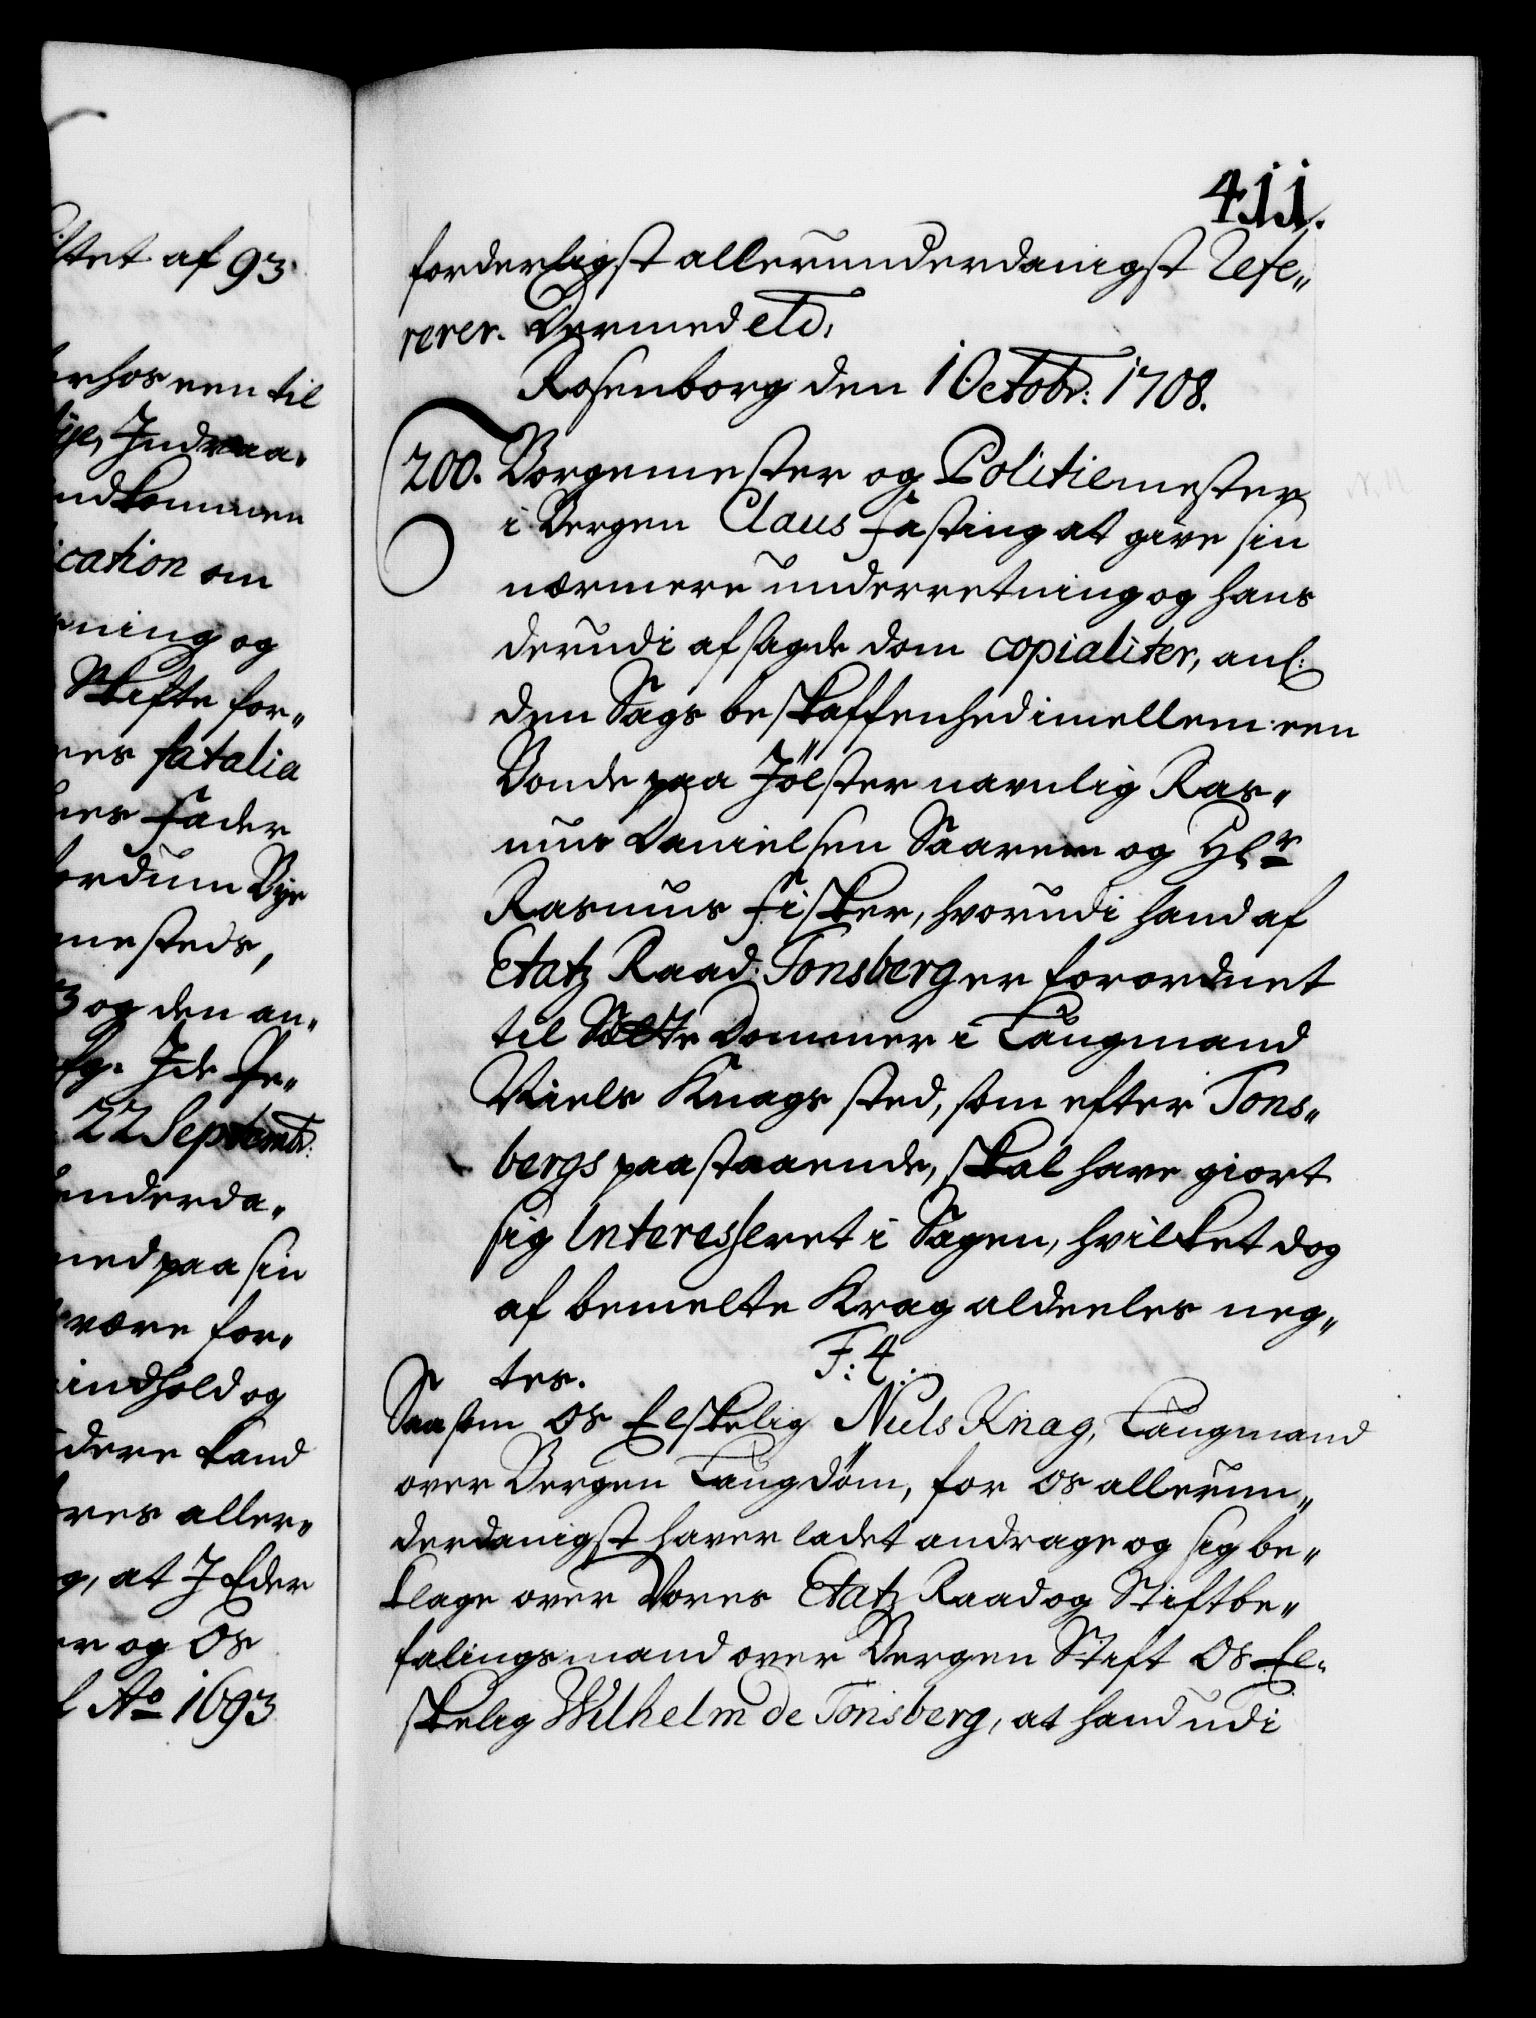 ttet af 93.
erhos een til
lije, Indraa„
indkommen
ication om
ning og
Skifte for„
nes fatalia
nes Fader
fordum Bye
mesteds,
3 og den an„
22 Septembr:
underda„
med paa sin
være for„
indhold og
dere kand
res aller„
g, at I Eder
er og Os
A͞o 1693
411.
forderligst allerunderdanigst Refe„
rerer. Dermed etc:
Rosenborg den 1 Octobr: 1708.
200. Borgemester og Politiemester
i Bergen Claus Fasting at give sin
nærmere underretning og hans
derudi afsagde dom copialiter, anl:
den Sags beskaffenhed imellem een
Bonde paa Jölster navnlig Ras„
mus Danielsen Saarem og Hr
Rasmus Fisker, hvorudi hand af
Etatz Raad Tonsberg er forordnet
til Sætte Dommer i Laugmand
Niels Knags sted, som efter Tons„
bergs paastaaende, skal have giort
sig Interesseret i Sagen, hvilket dog
af bemelte Knag aldeeles neg„
tes. F: 4.
Saasom Os Elskelig Niels Knag, Laugmand
over Bergen Laugdöm, for Os allerun„
derdanigst haver ladet andrage og sig be„
klage over Vores Etatz Raad og Stiftbe„
falingsmand over Bergen Stift Os El„
skelig Wilhelm de Tonsberg, at hand udi